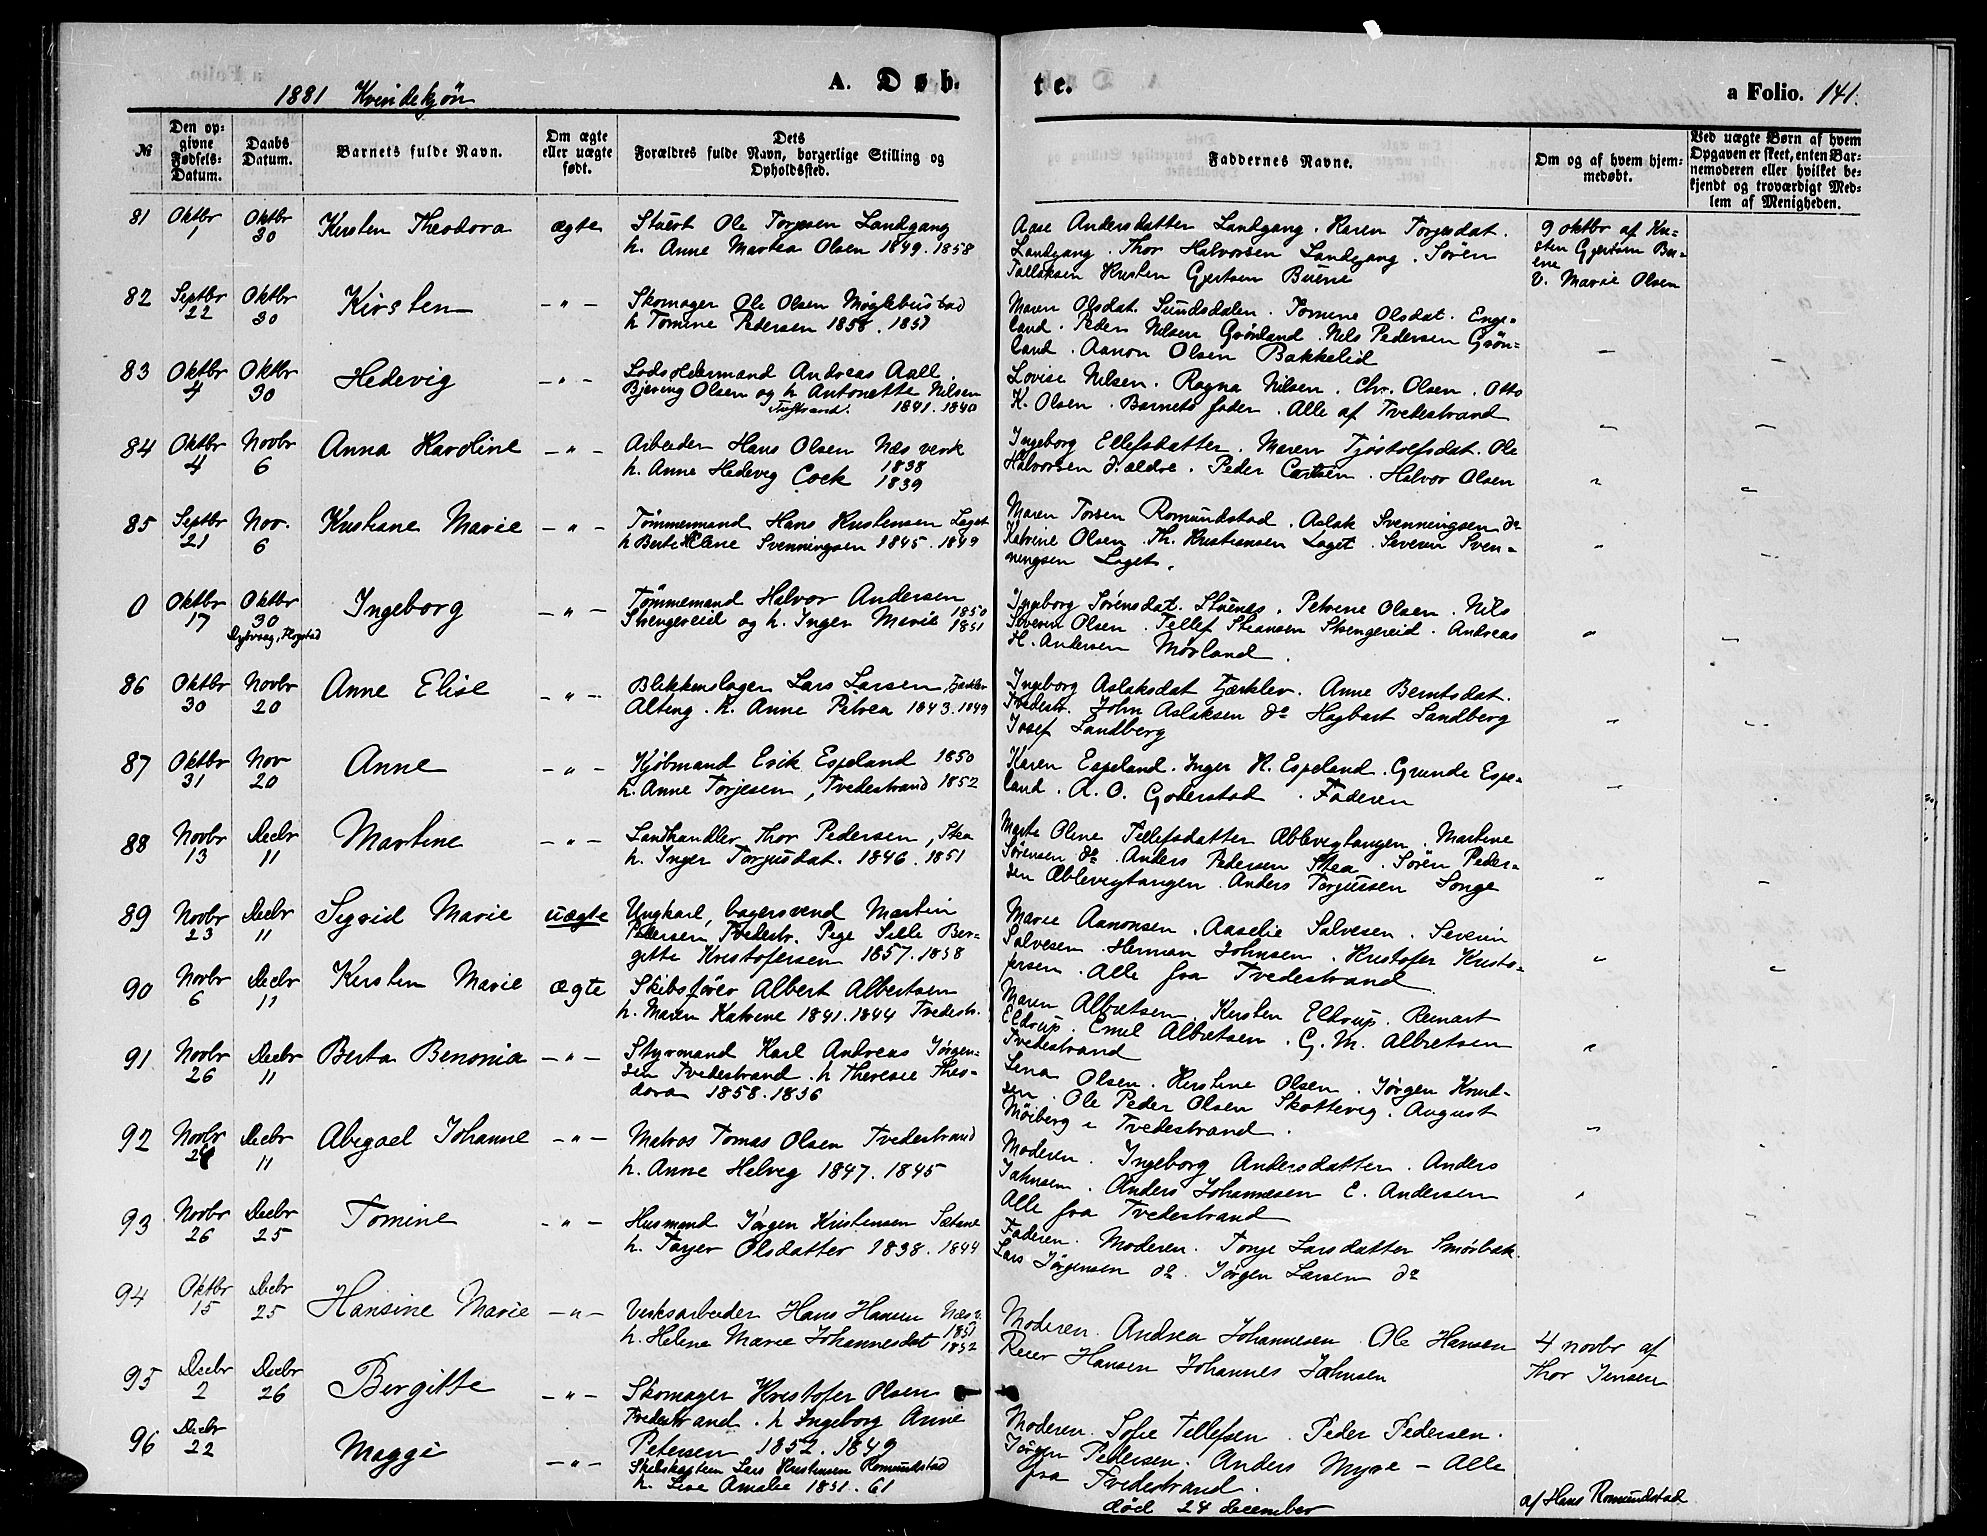 1881 Kvindekjøn
A. Døb-
te.
a Folio. 141.
№
Den op-
givne
Fødsels-
Datum.
Daabs
Datum.
Barnets fulde Navn.
Om ægte
eller uægte
født.
Dets
Forældres fulde Navn, borgerlige Stilling og
Opholdssted.
Faddernes Navne.
Om og af hvem hjem-
medøbt.
Ved uægte Børn af hvem
Opgaven er skeet, enten Bar-
nemoderen eller hvilket be-
kjendt og troværdigt Med-
lem af Menigheden.
81 Oktbr 1 Oktbr 30 Kirsten Theodora ægte
Stuert Ole Torjesen Landgang
h. Anne Martea Olsen 1849. 1858
Aase Andersdatter Landgang. Karen Torjusdat.
Landgang. Thor Halvorsen Landgang. Sören
Tallaksen Kristen Gjertsen Buene
9 oktbr af Kri-
sten Gjertsen Bu-
ene
V. Marie Olsen
82 Septbr 22 Oktbr 30 Kirsten -"-
Skomager Ole Olsen Møglebustad
h Tomine Pedersen 1858. 1857
Maren Olsdat. Sundsdalen. Tomine Olsdat. Enge-
land. Peder Nilsen Grönland. Nils Pedersen Grön-
land. Aanon Olsen Bakkelid
83 Oktbr 4 Oktbr 30 Hedevig -"-
Lods Oldermand Andreas Aall
Bjering Olsen og h Antonette Nilsen
Tvstrand. 1841. 1840
Lovise Nilsen. Ragna Nilsen. Chr. Olsen. Otto
K. Olsen. Barnets fader. Alle af Tvedestrand
84 Oktbr 4 Novbr 6 Anna Karoline -"-
Arbeider Hans Olsen Næs verk
1838
h. Anne Hedevig Cock 1839
Ingeborg Ellefsdatter. Maren Tjöstolfsdat. Ole
Halvorsen d. ældre. Peder Carlsen. Halvor Olsen
85 Septbr 21 Nov. 6 Kristiane Marie -"-
Tømmermand Hans Kristensen Laget
h Berte Helene Svenningsen 1845. 1849
Maren Torsen Romundstad. Aslak Svenningsen do
Katrine Olsen. Th. Kristiansen Laget. Severin Sven-
ningsen Laget.
0 Oktbr 17 Oktbr 30 Ingeborg -"-
Tømmermand Halvor Andersen
Skengereid og h. Inger Marie 1850
1851
Ingeborg Sörensdat. Stuenes. Petrine Olsen. Nils
Severin Olsen. Tellef Skengereid. Andreas
H. Andersen Mørland.
86 Oktbr 30 Novbr 20 Anne Elise -"-
Blikkenslager Lars Larsen
h. Anne Petrea 1843. 1849
Ingeborg Aslaksdat Fjærklev. Anne Berntsdat.
Tvedestr. John Aslaksen do Hagbart Sandberg
Josef Sandberg
87 Oktbr 31 Nov 20 Anne -"-
Kjøbmand Erik Espeland 1850
h. Anne Torjesen, Tvedestrand 1852
Karen Espeland. Inger K. Espeland. Grunde Espe-
land. A. O. Goderstad. Faderen
88 Novbr 13 Decbr 11 Martine -"-
Landhandler Thor Pedersen, Skea
h. Inger Torjusdat. 1846. 1851
Marte Oline Tellefsdatter Æblevigtangen. Martine
Sörensen do Anders Pedersen Skea. Sören Peder-
sen Æblevigtangen. Anders Torjussen Songe
89 Novbr 23 Decbr 11 Sigrid Marie uægte
Ungkarl, bagersvend Martin
Pedersen, Tvedestr. Pige Sille Ber-
gitte Kristofersen 1857. 1858
Marie Aanonsen. Aaselie Salvesen. Severin
Salvesen. Herman Johnsen. Kristofer Kristo-
fersen. Alle fra Tvedestrand
90 Novbr 6 Decbr 11 Kirsten Marie ægte
Skibsfører Albert Albertsen
h. Maren Katrine 1841. 1844 Tvedestr.
Maren Albretsen. Kirsten Eldrup. Reinart
Eldrup. Emil Albretsen. G. M. Albretsen
Tvedestrand
91 Novbr 26 Decbr 11 Berta Benonia -"-
Styrmand Karl Andreas Jörgen-
sen Tvedestrand. h Theresie Theo-
dora 1858. 1856
Lena Olsen. Kirstine Olsen. Jörgen Knud-
sen. Ole Peder Olsen Skottevig. August
Möiberg i Tvedestrand.
92 Novbr Decbr 11 Abigael Johanne -"-
Matros Tomas Olsen Tvedestrand
h. Anne Helvig 1847. 1845
Moderen. Ingeborg Andersdatter. Anders
Jahnsen. Anders Johannesen E. Andersen
Alle fra Tvedestrand
93 Novbr 26 Decbr 25 Tomine -"-
Husmand Jörgen Kristensen
h. Tager Olsdatter 1838. 1844
Faderen. Moderen. Tonje Larsdatter Smörbæk.
Lars Jörgensen do. Jörgen Larsen do
94 Oktbr 15 Decbr 25 Hansine Marie -"-
Verksarbeider Hans Hansen Næs v.
1851
h. Helene Marie Johannesdat 1852
Moderen. Andrea Johannesen Ole Hansen
Reier Hansen Johannes Jahnsen
4 novbr af
Thor Jensen
95 Decbr 2 Decbr 26 Bergitte -"-
Skomager Kristofer Olsen
Tvedestrand. h Ingeborg Anne
Petersen 1852. 1849
Moderen. Sofie Tellefsen. Peder Pedersen.
Jörgen Pedersen. Anders Myre - Alle
fra Tvedestrand.
96 Decbr 22 Maggi -"-
Skibskaptein Lars Kristensen Romundstad
h. Lise Amalie 1851. 61
död 24 december
af Hans Romundstad